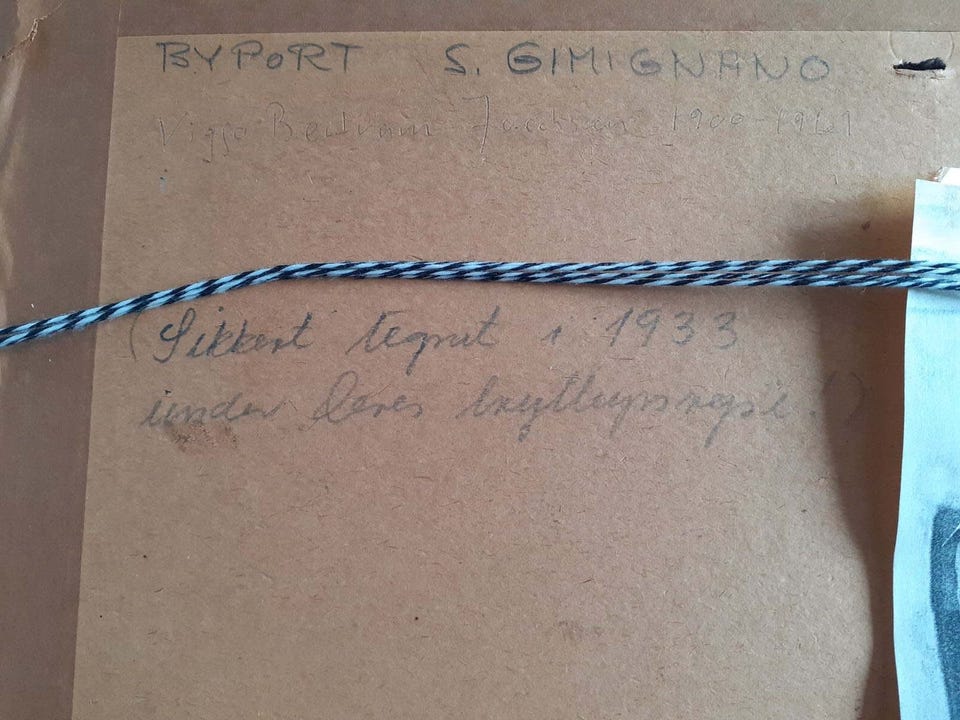 BYPORT S. GIMIGNANO
Viggo Bertram 1900-1961
(Sikkert tegnet i 1933
under deres bryllupsrejse!)